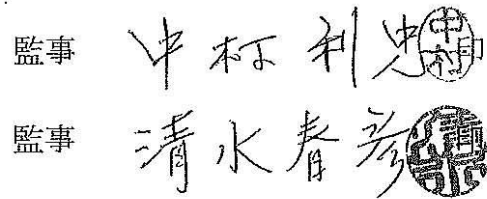 監事 中村利忠 中村印
監事 清水春彦 清水